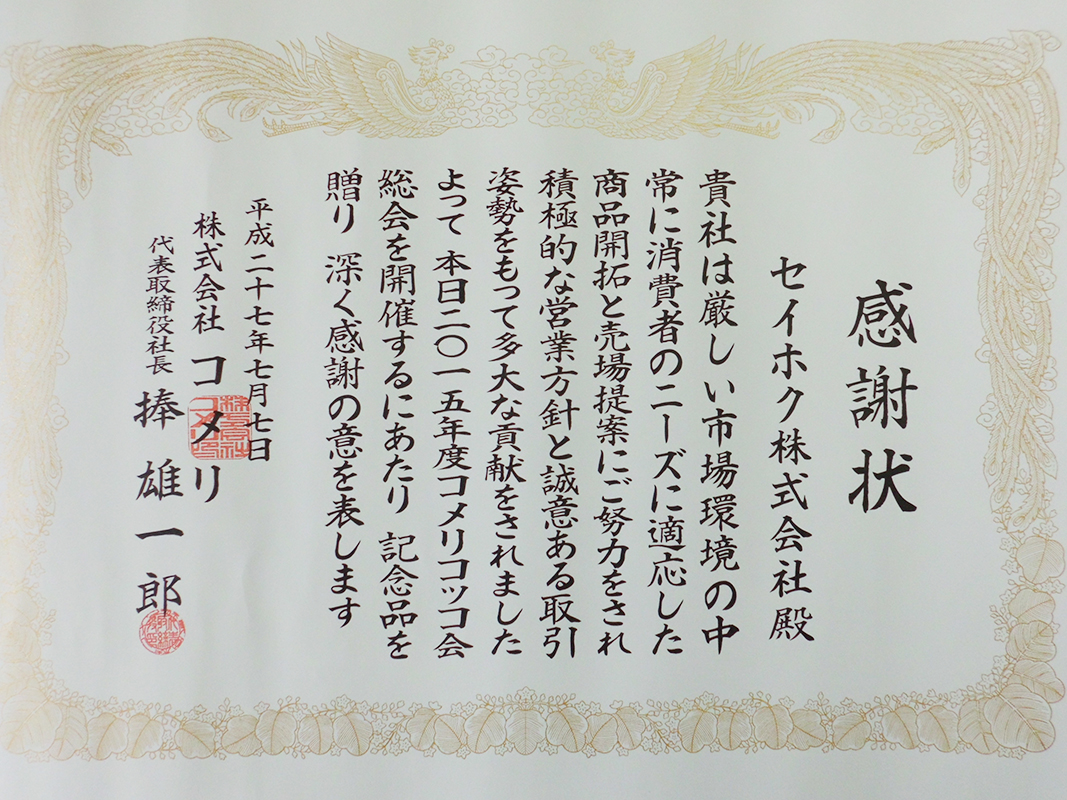 感謝状
セイホク株式会社殿
貴社は厳しい市場環境の中
常に消費者のニーズに適応した
商品開拓と売場提案にご努力をされ
積極的な営業方針と誠意ある取引
姿勢をもって多大な貢献をされました
よって 本日二〇一五年度コメリコッコ会
総会を開催するにあたり 記念品を
贈り 深く感謝の意を表します
平成二十七年七月七日
株式会社 コメリ
代表取締役社長 捧 雄一郎